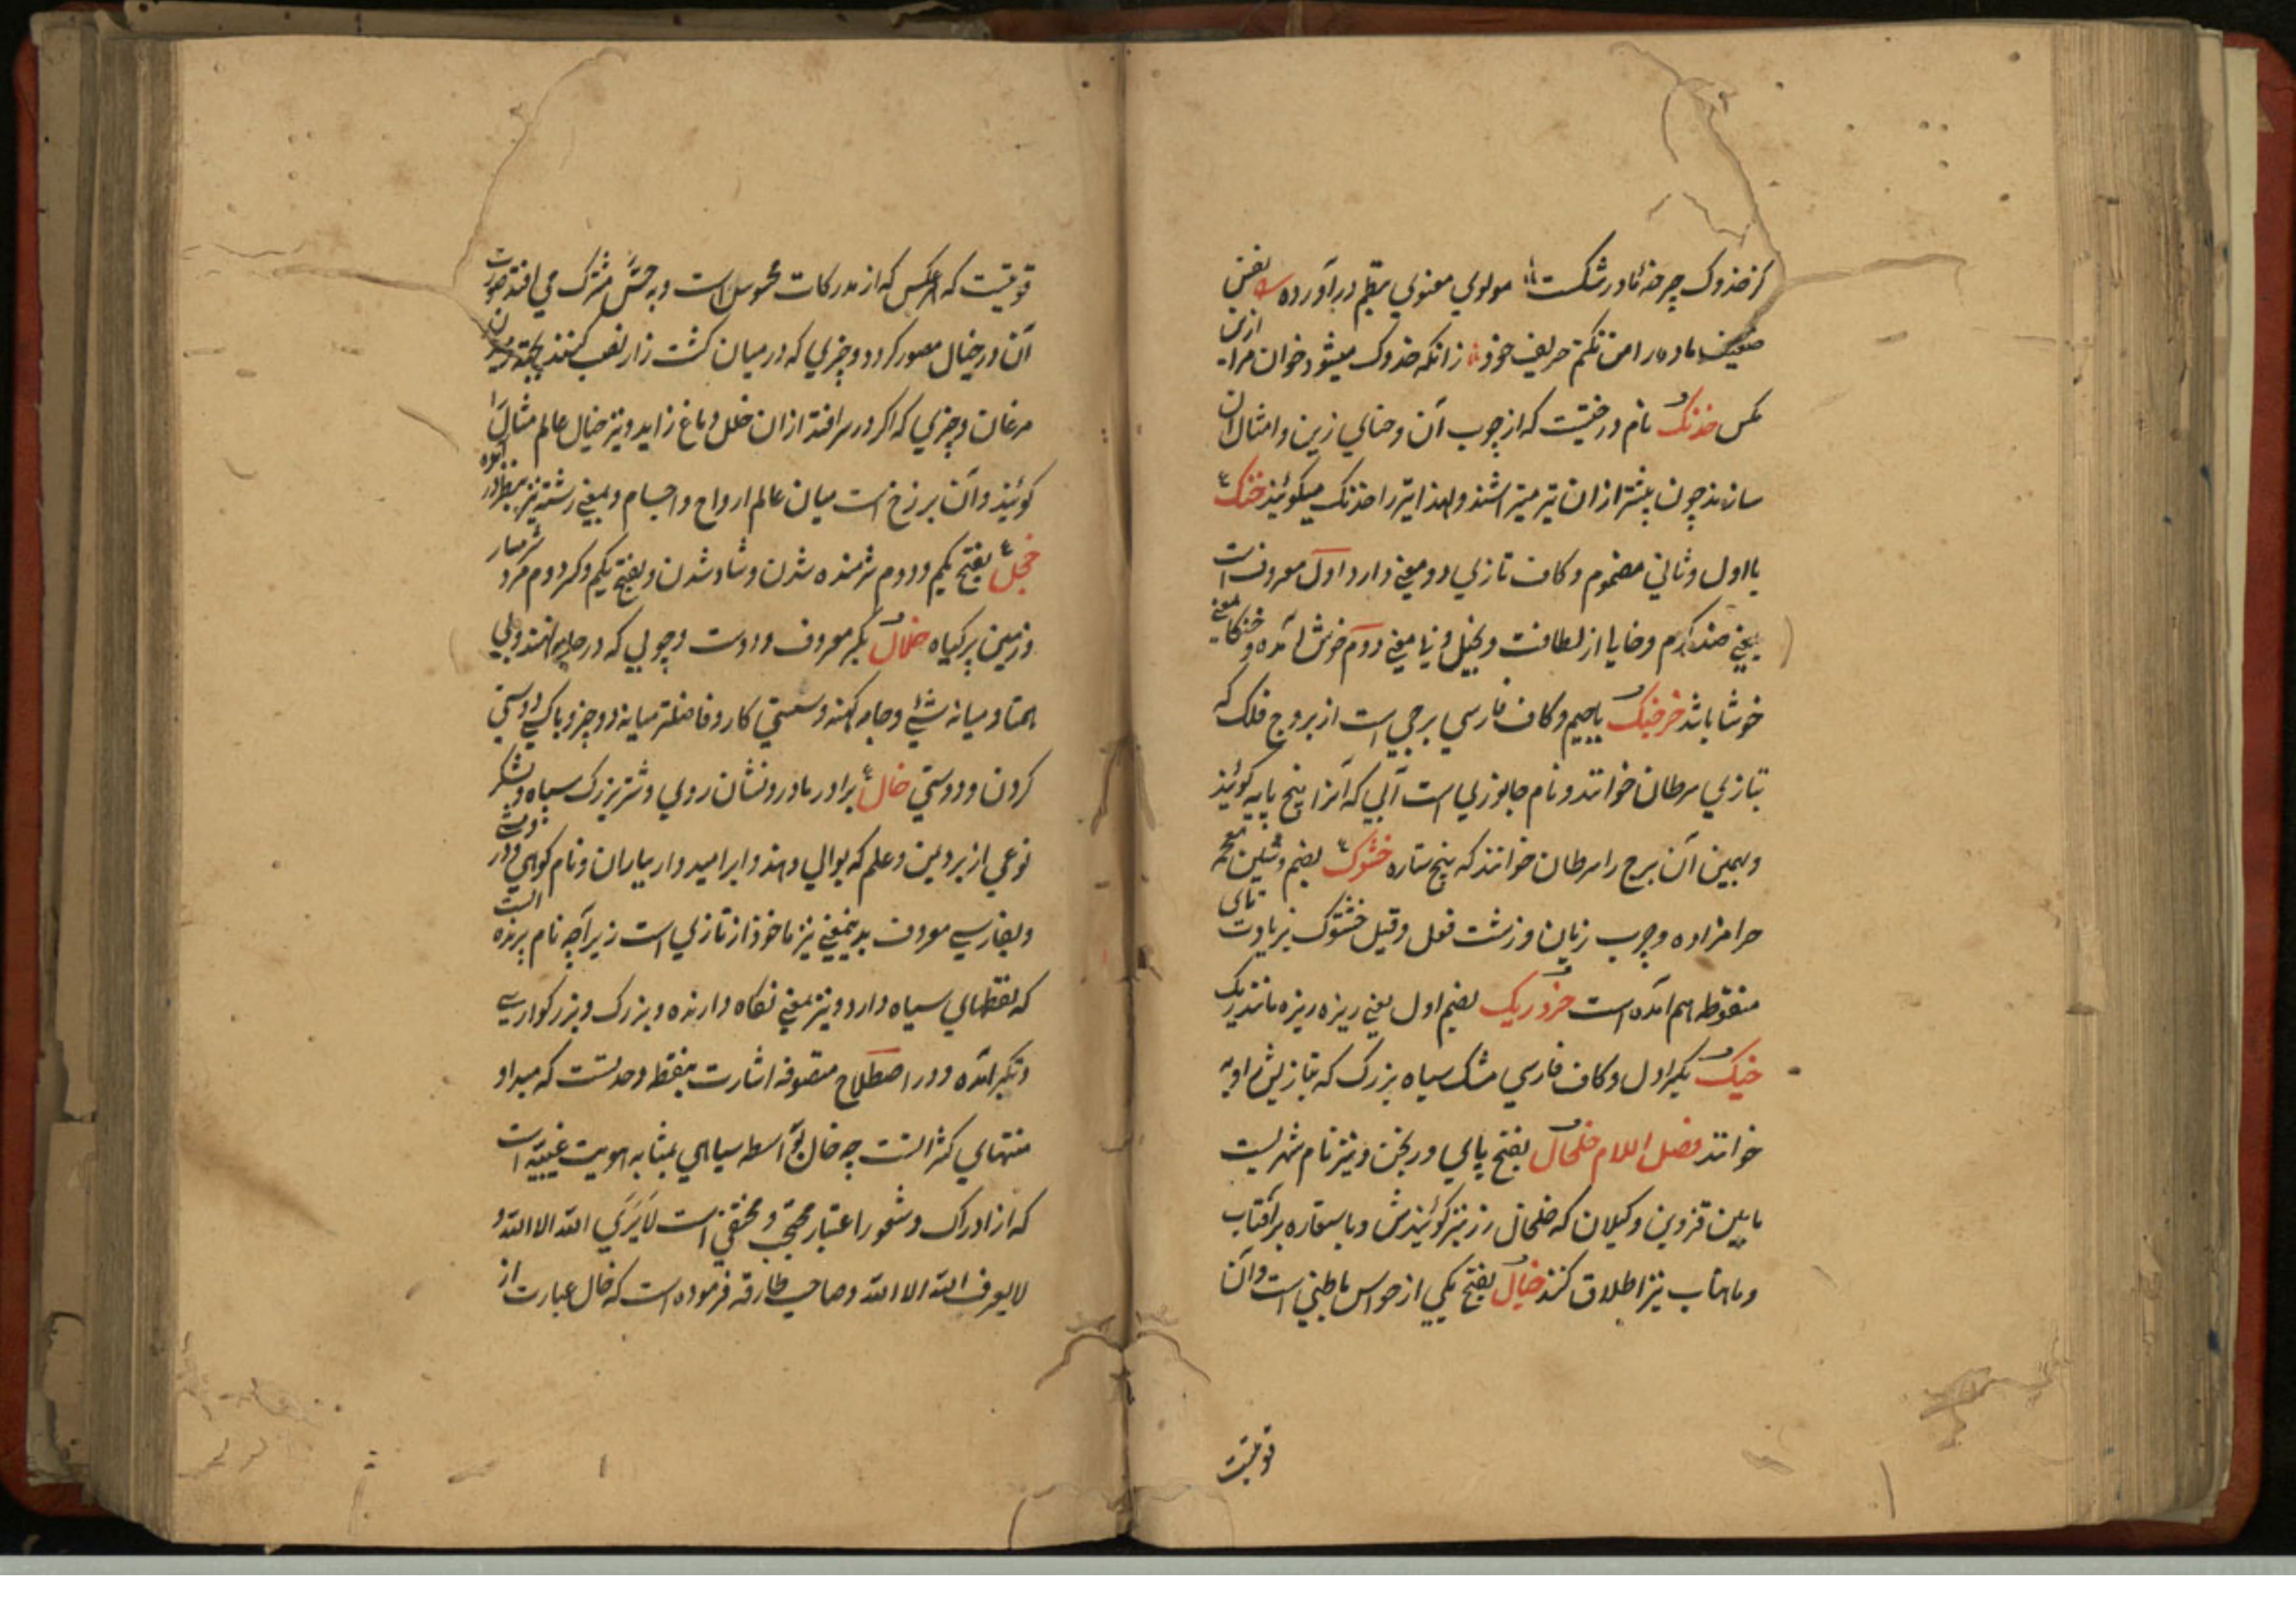 از خدوک چرخهٔ نادر شکست مولوي معنوي بنظم در آورده نفس
ضعیف ماده را من نکنم حریف خود زانکه خدوک میشود خوان مرا ازین
مکس خدنک نام درختیست که از چوب آن و حناي زین و امثال آن
سازند چون بیشتر از ان تیر میتراشند و لهذا تیر را خدنک میکویند خنک
با اول و ثاني مضموم و کاف تازي دو معني دارد اول معروفست
یعني ضد کرم و دوم خوش آمده و خنکا بمعني
خوشا باشد خرچنک با جیم و کاف فارسي برجي است از بروج فلک که
بتازي سرطان خوانند و نام جانوري است آبي که آنرا پنج پایه کویند
و بهمین آن برج را سرطان خوانند که پنج ستاره خشوک بضم و شین معجمه
حرامزاده و چرب زبان و زشت فعل و قیل خشتوک بزیادت تاي
منقوطه هم آمده است خردریک بضم اول یعني ریزه ریزه مانند ریک
خیک بکسر اول و کاف فارسي مشک سیاه بزرک که بتازیش
خوانند فصل اللام خلخال بفتح پاي ورنجن و نیز نام شهریست
مابین قزوین و کیلان که خلخال زر نیز کویندش و باستعاره بر آفتاب
و ماهتاب نیز اطلاق کنند خیال بفتح یکي از حواس باطني است و آن
قوتیست
قوتیست که هر عکس که از مدرکات محسوس است و به حس مشترک مي افتد صورت
آن در خیال مصور کردد و چیزي که در میان کشت زار نصب کنند بجهة
مرغان و چیزي که اکر در سر افتد از ان خلل دماغ زاید و نیز خیال عالم مثال را
کویند و آن برزخ است میان عالم ارواح و اجسام و بمعني رشته نیز بنظر در آمده
خجل بفتح یکم و دوم شرمنده شدن و شاد شدن و بفتح یکم و کسر دوم مرد شرمسار
و زمین پر کیاه خلال بکسر معروف و دوست و چوبي که در
همتا و میانه شئ و جامه کهنه و سستي کار و فاصله میانه دو چیز و دوستي
کردن و دوستي خال برادر مادر و نشان روي و شتر بزرک سیاه و لشکر
نوعي از برد یمن و علم که بوالي دهند و ابر امیدوار بباران و نام کوهي و در
و بفارسي معروف بدینمعني نیز ماخوذ از تازي است زیراچه نام پرنده الست
که نقطهاي سیاه دارد و نیز بمعني نکاه دارنده و بزرک و بزرکوار
و تکبر آمده و در اصطلاح متصوفه اشارت بنقطه وحدتست که مبداء و
منتهاي کثرالتست چه خال بواسطه سیاهي بمثابه هویت غیبیه است
که از ادراک و شعور اعتبار محتجب و مختفي است لا یري الله الا الله و
لا یعرف الله الا الله و صاحب فرموده است که خال عبارت از